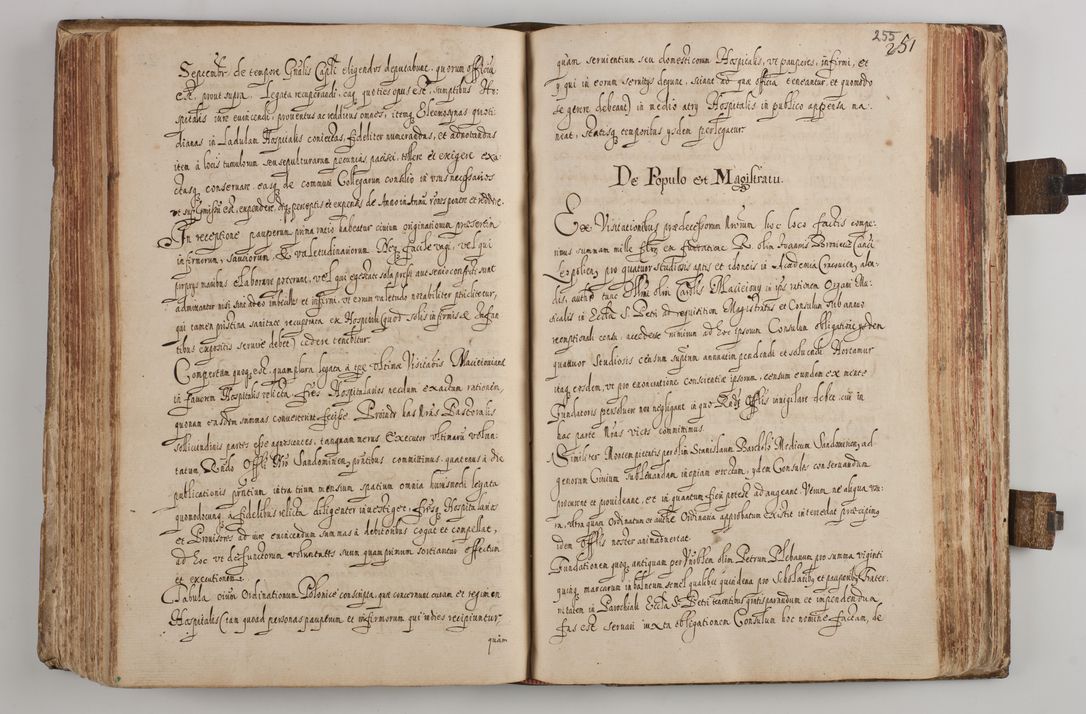 Septembr. de tempore Gnalis Capli eligendos deputabunt, quorum officiũ
est, prout supra. Legata recuperandi, eaq quoties opus est, sumptibus Ho-
spitalis iure evincendi, proventus ac redditus omnes, itemq Eleemosynas quoti-
dianas in Ladulam Hospitalis coniectas, fideliter numerandas, et adnotandas
item à locis tumulorum seu sepulturarum pecunias, pacisci, tollere et exigere exa-
ctasq conservare, easq de communi Collegarum consilio in usus necessarios
ut supra missum est, expendere, deq perceptis et expensis de Anno in Annũ rones ponere et reddere.
In receptione pauperum prima ratio habeatur civium originariorum praesertim
infirmorum, sauciorum, et valetudinariorum Neq facile vagi, vel qui
proprys manibus elaborare poterunt, vel qui egestate sola pressi aut senio confecti sunt
admittantur nisi sint adeo imbecilles et infirmi, ut eorum valetudo notabiliter periclitetur,
qui tamen pristina sanitate recuperata ex Hospitali (quod solis infirmis et Infan
tibus expositis servire debet) cedere tenebitur.
Compertum quoq est, quam plura legata à tpe ultimæ Visitaõis Macieioviane
in favorem Hospitalis relicta, fres Hospitalarios necdum exactam rationem,
quonam easdem summas converterint fecisse. Proinde has Nras Pastoralis
sollicitudinis partes esse agnoscentes, tanquam nerus Executor ultimarũ volun-
tatum Rndo Offli Nro Sandomirien pñtibus committimus, quatenus à die
publicationis pntium intra trium mensium spatium omnia huiusmodi legata
quomodocunq à fidelibus relicta diligenter investiget, fresq Hospitalarios
et Provisores ad iure evincendum summas à debitoribus cogat et compellat,
ad hoc ut defunctorum voluntates suum quam primum sortiantur effectum
et executionem.
Tabula etiam Ordinationum Polonicè conscripta, quæ concernunt curam et regimen
Hospitalis (tam quoad personas pauperum et infirmorum qui indies recipiuntur
quàm
255
251
quàm servientium seu domesticorum Hospitalis, ut pauperes, infirmi, et
y qui in eorum servitijs degunt, sciant ad quæ officia teneantur, et quomodo
se gerere debeant) in medio atry Hospitalis in publico appensa ma-
neat, statisq temporibus ysdem perlegatur.
De Populo et Magistratu.
Ex Visitationibus praedecessorum Nrorum hoc loco factis compe-
rimus summam mille flor. ex fundatione R. olim Joannis Bornicii Canci
Leopolien, pro quatuor studiosis aptis et idoneis in Academia Cracovien, alen-
dis, authte tunc Illmi olim Caroli Macieiony in ipsa rationem Organi Mu-
sicalis in Eccla S. Petri ad requisitionem Magistratus et Consulum sub annuo
reemptionali censu, accedente nimirum ad hoc ipsorum Consulum obligatione ysdem
quatuor studiosis censum supram annuatim pendendi et solvendi. Hortamur
itaq eosdem, ut pro exoneratione conscientiæ ipsorum, censum eundem ex mente
Fundatoris persolvere non negligant in quo Rnds Offlis invigilare debet, cui in
hac parte Nras vices committimus.
Similiter Montem pietatis per olim Stanislaum Bartholo Medicum Sandomirien, ad
egenorum Civium sublevandam inopiam erectum, ydem Consules conservandum
procurent et provideant, et in quantum fieri potest adaugeant. Verum ne aliqua usu-
ra, ultra quam Ordinatum et authte Ordinaria approbatum existit intercedat præcipimus
idem Offlis noster animadvertat.
Fundationem quoq antiquam per Nobilem olim Petrum Plebanum pro summa viginti
quinq marcarum in balneum semel qualibet quindena pro Scholaribus et pauperibus Frater-
nitatem in Parochiali Eccla S. Petri tenentibus grátis parandum et impendendum
fas est servari iuxta obligationem Consulum hoc nomine factam, de